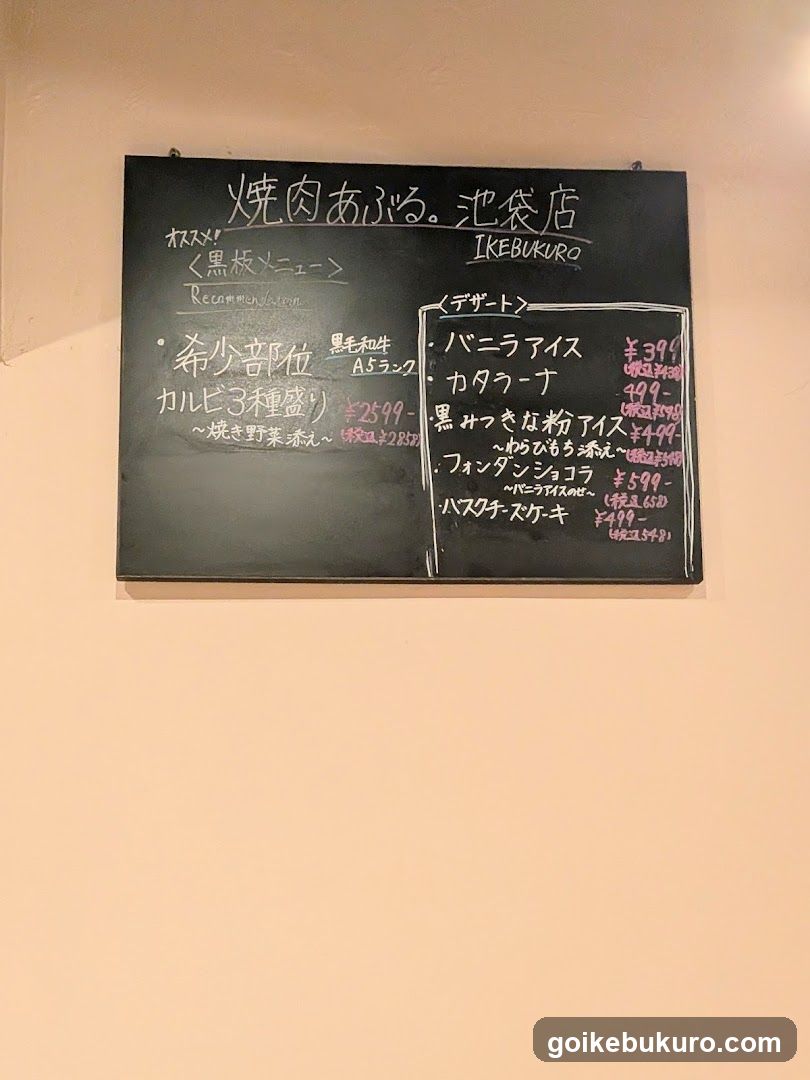 焼肉あぶる。池袋店
IKEBUKURO
オススメ!
〈黒板メニュー〉
Recommendation
・希少部位 黒毛和牛
A5ランク
カルビ3種盛り ¥2599-
～焼き野菜添え～ (税込¥2858)
〈デザート〉
・バニラアイス ¥399
(税込¥438)
・カタラーナ 499-
(税込¥548)
・黒みつきな粉アイス ¥499-
～わらびもち添え～ (税込¥548)
・フォンダンショコラ ¥599-
～バニラアイスのせ～ (税込658)
・バスクチーズケーキ ¥499-
(税込548)
goikebukuro.com